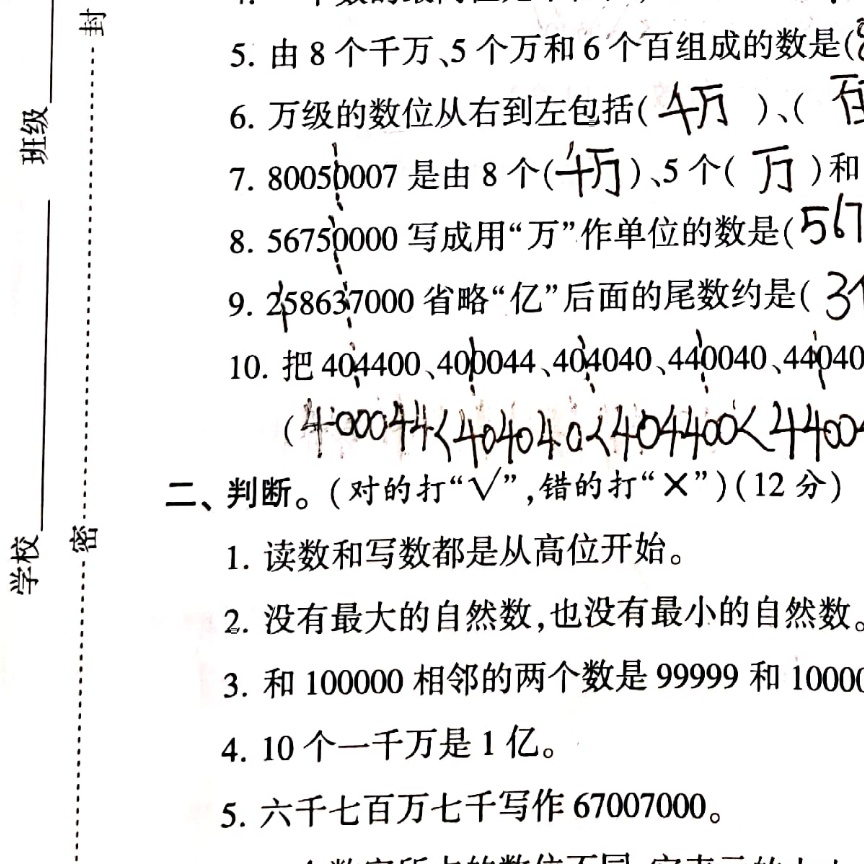 封
班级
学校
密
5. 由 8 个千万、5 个万和 6 个百组成的数是(
6. 万级的数位从右到左包括( 千万 )、(
7. 80050007 是由 8 个(千万)、5 个( 万 )和
8. 56750000 写成用“万”作单位的数是(567
9. 258637000 省略“亿”后面的尾数约是( 3
10. 把 404400、400044、404040、440040、44040
(400044<404040<404400<4400
二、判断。(对的打“√”,错的打“×”)(12 分)
1. 读数和写数都是从高位开始。
2. 没有最大的自然数,也没有最小的自然数。
3. 和 100000 相邻的两个数是 99999 和 10000
4. 10 个一千万是 1 亿。
5. 六千七百万七千写作 67007000。